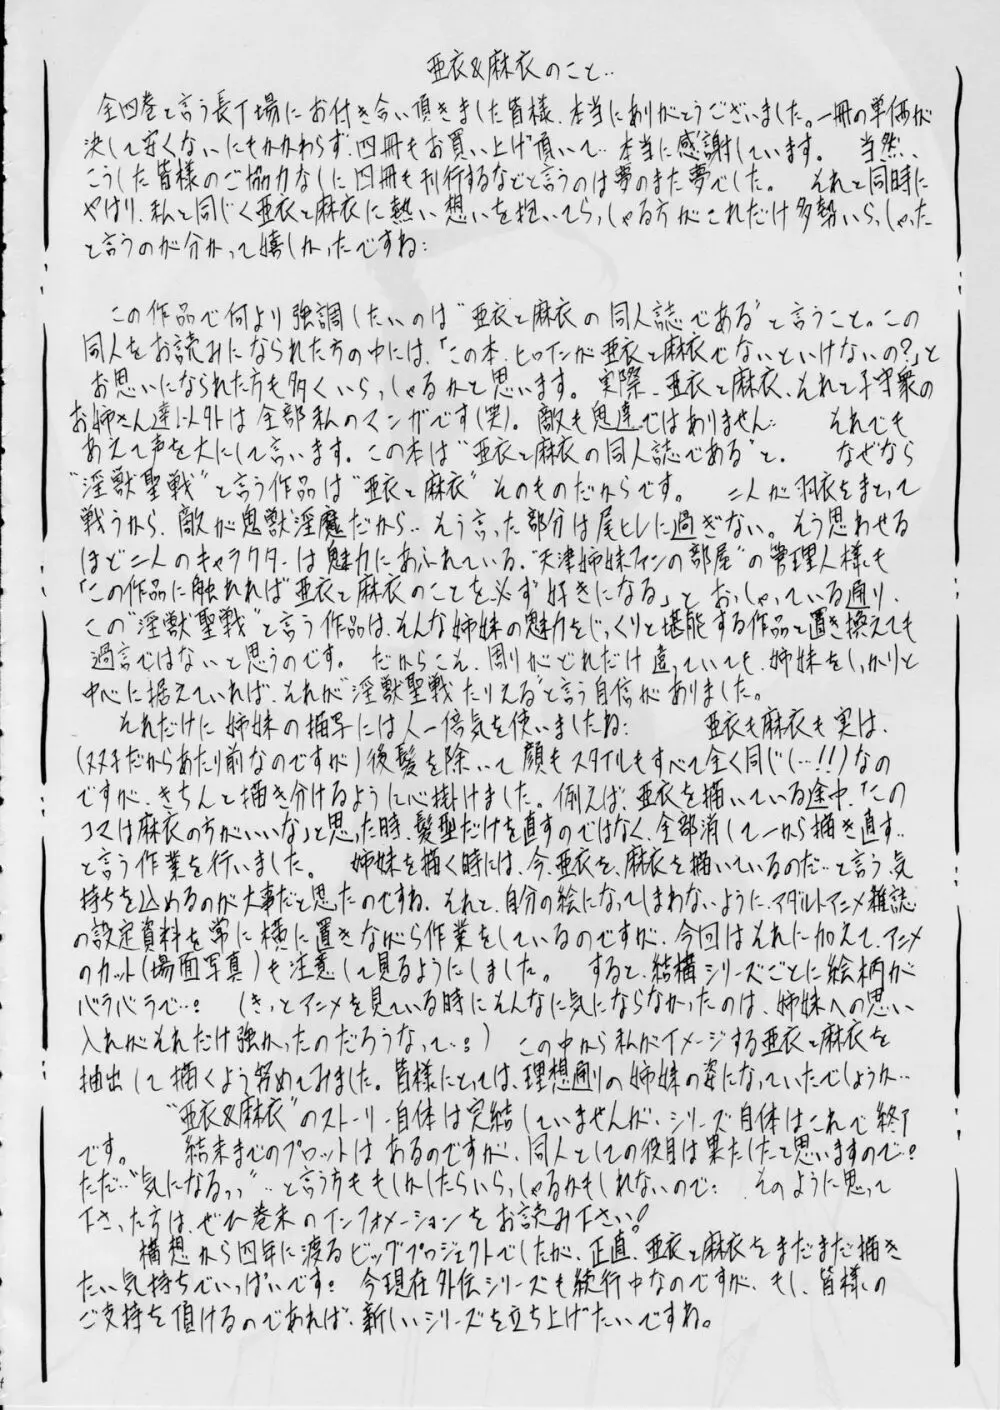 亜衣&麻衣のこと‥
全四巻と言う長丁場にお付き合い頂きました皆様、本当にありがとうございました。一冊の単価が
決して安くないにもかかわらず、四冊もお買い上げ頂いて‥本当に感謝しています。 当然、
こうした皆様のご協力なしに四冊も刊行するなどと言うのは夢のまた夢でした。 それと同時に
やはり、私と同じく亜衣と麻衣に熱い想いを抱いてらっしゃる方がこれだけ多勢いらっしゃった
と言うのが分かって嬉しかったですね:
この作品で何より強調したいのは“亜衣と麻衣の同人誌である”と言うこと。この
同人をお読みになられた方の中には、「この本、ヒロインが亜衣と麻衣でないといけないの?」と
お思いになられた方も多くいらっしゃるかと思います。実際、亜衣と麻衣、それと子守衆の
お姉さん達以外は全部私のマンガです(笑)。敵も鬼達ではありません: それでも
あえて声を大にして言います。この本は“亜衣と麻衣の同人誌である”と. なぜなら
“淫獣聖戦”と言う作品は“亜衣と麻衣”そのものだからです。 二人が羽衣をまとって
戦うから、敵が鬼獣淫魔だから‥そう言った部分は尾ヒレに過ぎない。そう思わせる
ほど二人のキャラクターは魅力にあふれている、“天津姉妹ファンの部屋”の管理人様も
「この作品に触れれば亜衣と麻衣のことを必ず好きになる」とおっしゃっている通り、
この“淫獣聖戦”と言う作品は、そんな姉妹の魅力をじっくりと堪能する作品と置き換えても
過言ではないと思うのです。 だからこそ、周りがどれだけ違っていても、姉妹をしっかりと
中心に据えていれば、それが“淫獣聖戦たりえる”と言う自信がありました。
それだけに姉妹の描写には人一倍気を使いましたね: 亜衣も麻衣も実は、
(双子だからあたり前なのですが)後髪を除いて顔もスタイルもすべて全く同じ(…!!)なの
ですが、きちんと描き分けるように心掛けました。例えば、亜衣を描いている途中、「この
コマは麻衣の方がいいな」と思った時、髪型だけを直すのではなく、全部消して一から描き直す‥
と言う作業を行いました。 姉妹を描く時には、今、亜衣を、麻衣を描いているのだ‥と言う気
持ちを込めるのが大事だと思ったのですね、それと、自分の絵になってしまわないように、アダルトアニメ雑誌
の設定資料を常に横に置きながら作業をしているのですが、今回はそれに加えて、アニメ
のカット(場面写真)も注意して見るようにしました。 すると、結構シリーズごとに絵柄が
バラバラで…。 (きっとアニメを見ている時にそんなに気にならなかったのは、姉妹への思い
入れがそれだけ強かったのだろうなって…。) この中から私がイメージする亜衣と麻衣を
抽出して描くよう努めてみました。皆様にとっては、理想通りの姉妹の姿になっていたでしょうか‥
“亜衣&麻衣”のストーリー自体は完結していませんが、シリーズ自体はこれで終了
です。 結末までのプロットはあるのですが、同人としての役目は果たしたと思いますので…
ただ‥“気になるっっ”‥と言う方ももしかしたらいらっしゃるかもしれないので: そのように思って
下さった方は、ぜひ巻末のインフォメーションをお読み下さい!
構想から四年に渡るビッグプロジェクトでしたが、正直、亜衣と麻衣をまだまだ描き
たい気持ちでいっぱいです: 今現在外伝シリーズも続行中なのですが、もし、皆様の
ご支持を頂けるのであれば、新しいシリーズを立ち上げたいですね。